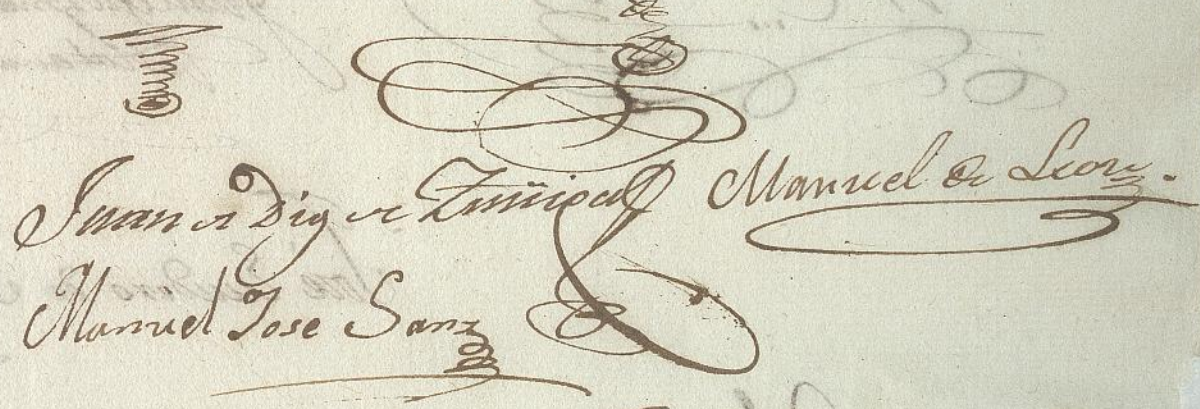 de
Juan de Dios de Zuñiga Manuel de Leon.
Manuel Jose Sanz